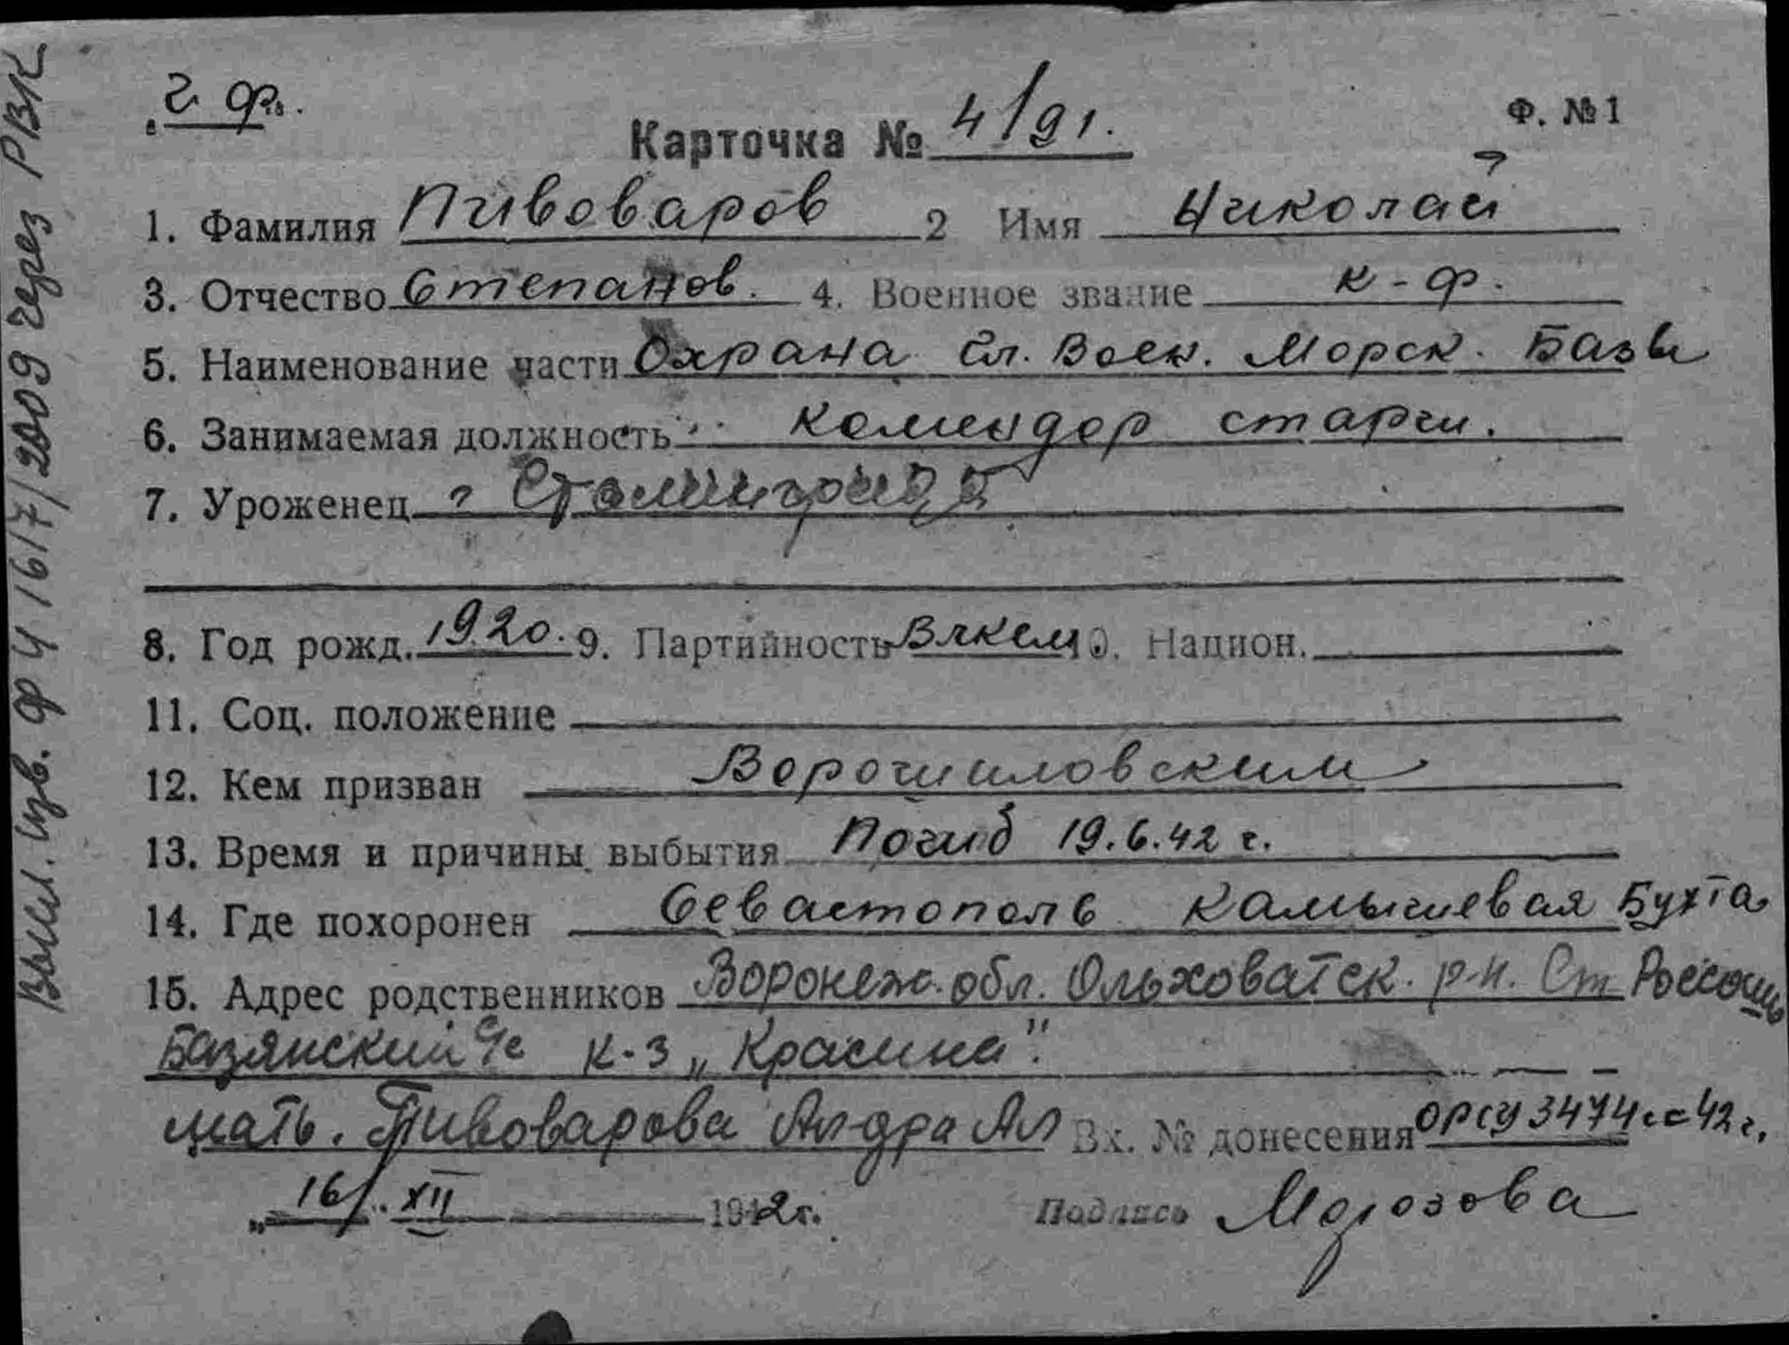 „Ч. Ф."
Карточка № 4/91.
Ф. №1
1. Фамилия Пивоваров 2 Имя Николай
3. Отчество Степанов. 4. Военное звание к-ф.
5. Наименование части Охрана Гл. Воен. Морск. Базы
6. Занимаемая должность комендор старш.
7. Уроженец г Сталинграда
8. Год рожд. 1920. 9. Партийность Влксм 10. Национ.
11. Соц. положение
12. Кем призван Ворошиловским
13. Время и причины выбытия Погиб 19.6.42 г.
14. Где похоронен Севастополь Камышевая Бухта
15. Адрес родственников Воронеж. обл. Ольховатск. р-н. Ст Россошь
Базянский с/с к-з „Красина".
мать. Пивоварова Ал-дра Ал Вх. № донесения ОРСУ 3474сс-42г.
„16/. XII 1942г.
Подпись Морозова
Высл. изв. Ф4 1617/2009 через РВК